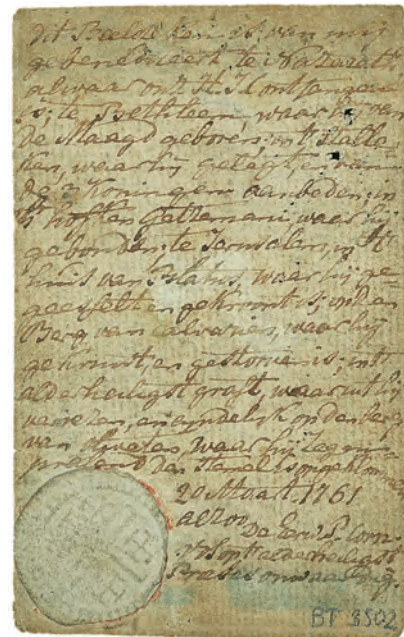 dit Beeldeken is van mij
gebenediceert te Nazareth
alwaar onz H. J. C ontfangen
is; te Bethleem waar hij van
de Maagd geboren; int stalle-
ken, waar hij geleijt, en van
de 3 Koningen aanbeden; in
't hofken Getzemani, waar hij
gebonden; te Jerusalem, in 't
huis van Pilatus, waar hij ge-
geesselt en gekroont is; op den
Berg van Calvarien, waar hij
gekruist, en gestorven is; int
alderheiligst graft, waar uit hij
verrezen, en eyndelijk op den berg
van Oliveten, waar hij tegen-
den Hemel is opgeklommen
20 Maart 1761
De Eerw. P. Corn.
BT 8502